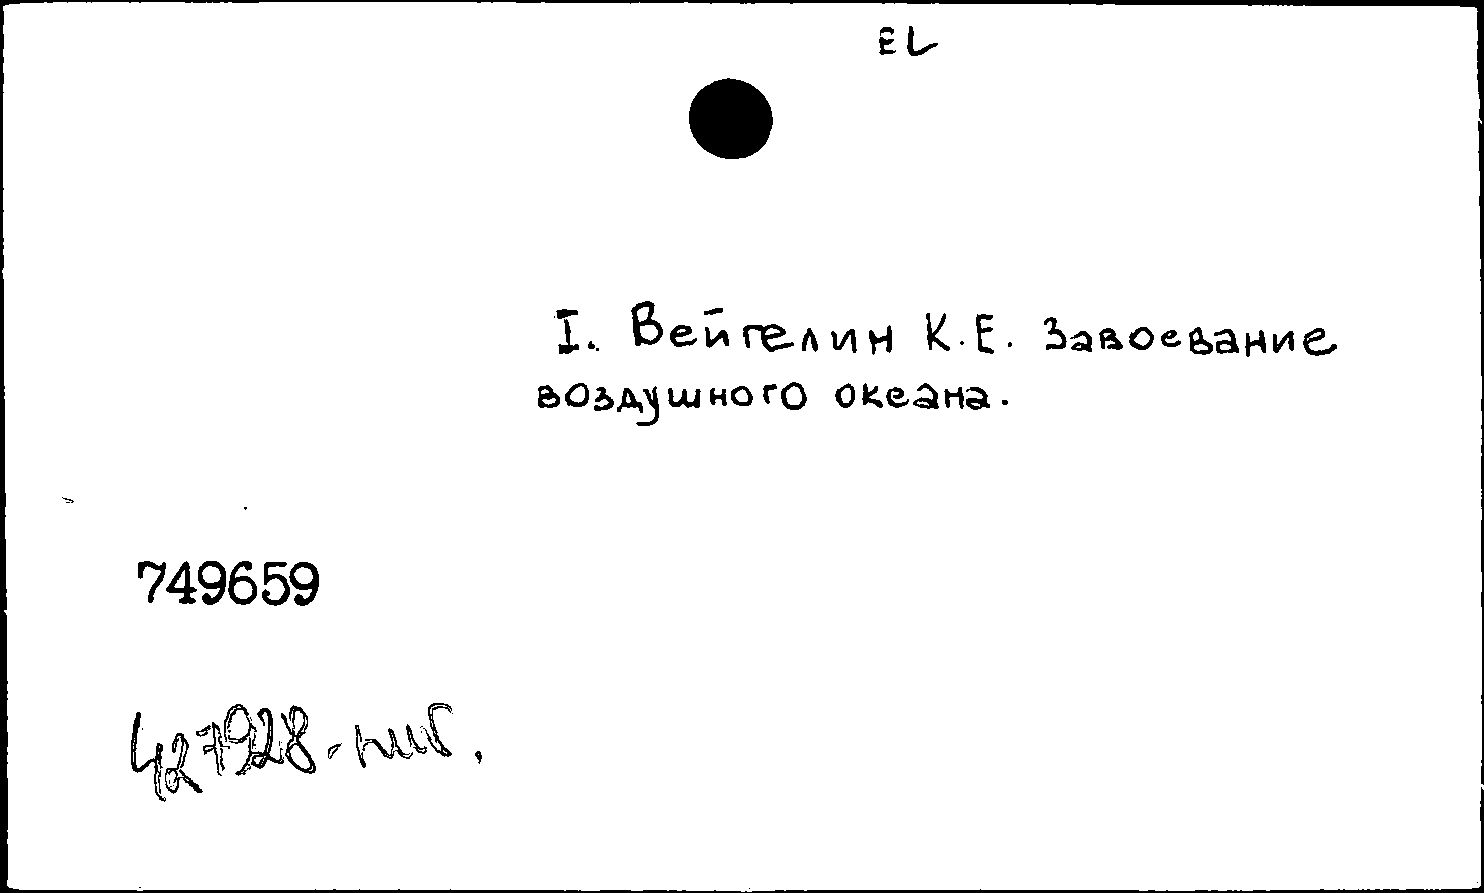 EL
I. Вейгелин К.Е. Завоевание
воздушного океана.
749659
427928